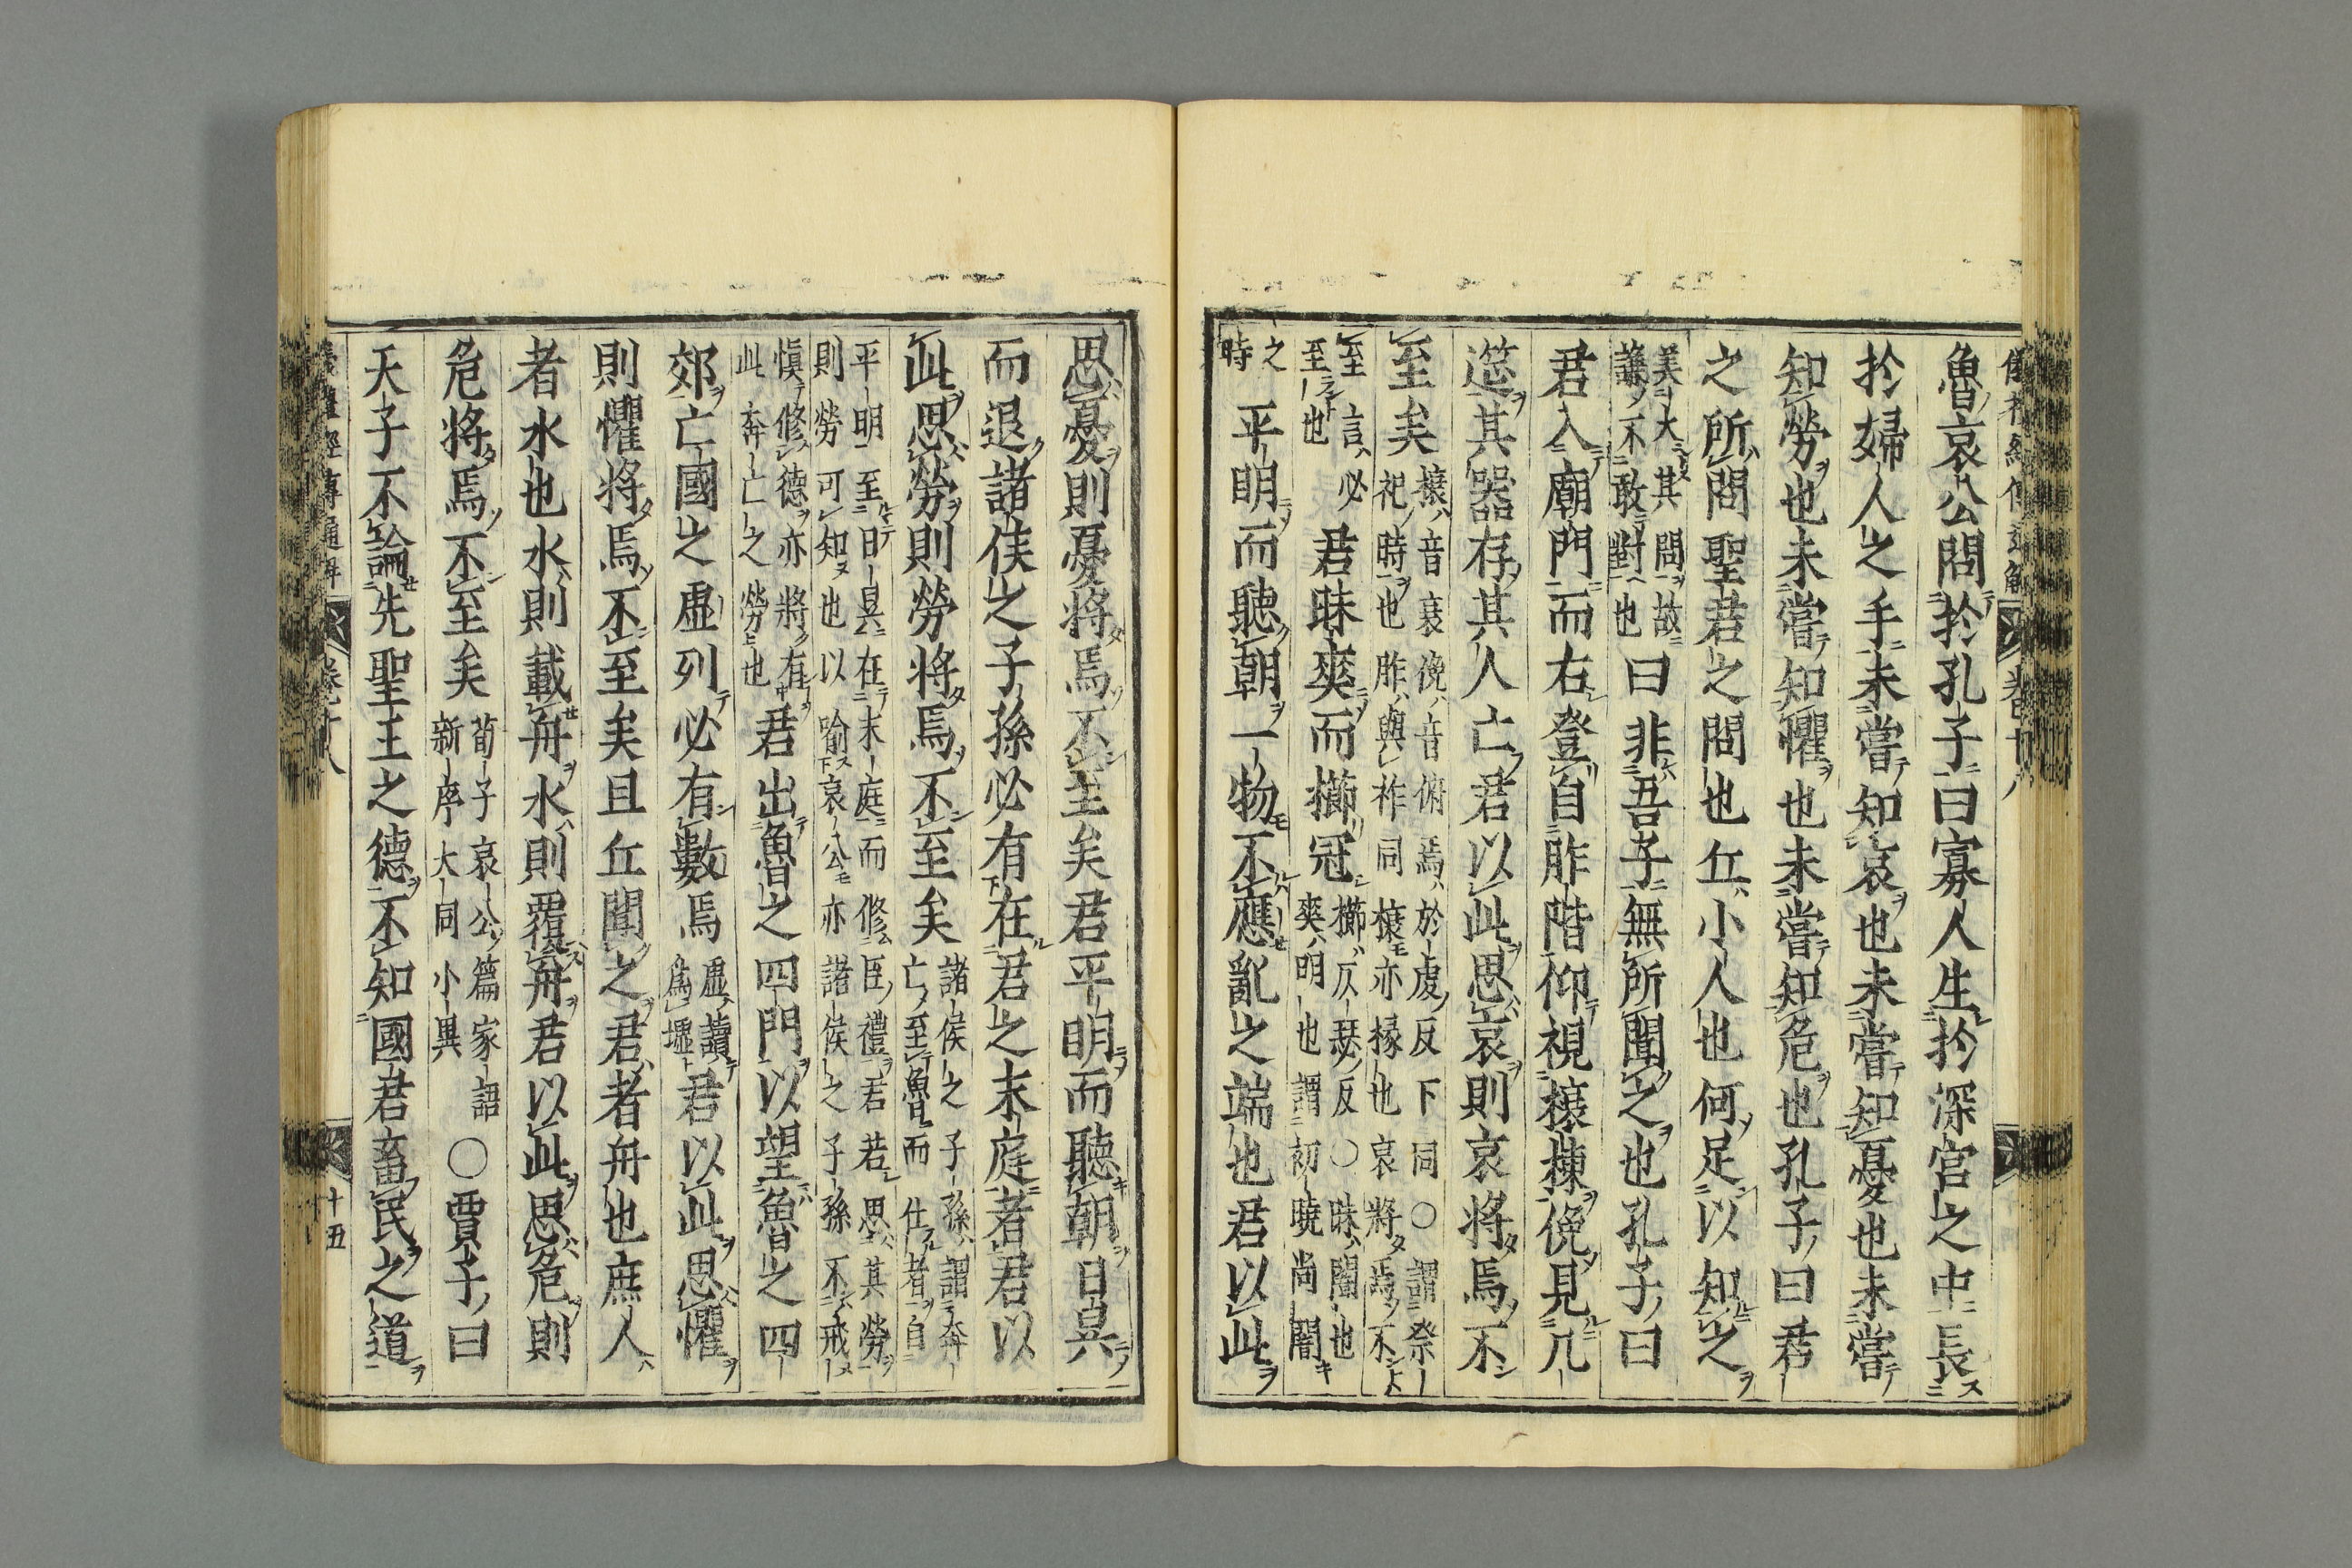 魯哀公問於孔子曰寡人生於深宮之中長
於婦人之手未嘗知哀也未嘗知憂也未嘗
知勞也未嘗知懼也未嘗知危也孔子曰君
之所問聖君之問也丘小人也何足以知之
美大其問故
謙不敢對也
曰非吾子無所聞之也孔子曰
君入廟門而右登自胙階仰視榱棟俛見几
筵其器存其人亡君以此思哀則哀將焉不
至矣
榱音衰俛音俯焉於虔反下同○謂祭
祀時也胙與祚同榱亦椽也哀將焉不
至言必
至也
君昧爽而櫛冠
櫛仄瑟反○昧闇也
爽明也謂初曉尚闇
之
時
平明而聽朝一物不應亂之端也君以此
思憂則憂將焉不至矣君平明而聽朝日昃
而退諸侯之子孫必有在君之末庭者君以
此思勞則勞將焉不至矣
諸侯之子孫謂奔
亡至魯而仕者自
平明至日昃在末庭而修臣禮君若思其勞
則勞可知也以喻哀公亦諸侯之子孫不戒
愼修德亦將有
此奔亡之勞也
君出魯之四門以望魯之四
郊亡國之虛列必有數焉
虛讀
爲墟
君以此思懼
則懼將焉不至矣且丘聞之君者舟也庶人
者水也水則載舟水則覆舟君以此思危則
危將焉不至矣
荀子哀公篇家語
新序大同小異
○賈子曰
天子不論先聖王之德不知國君畜民之道
卷廿八
十五